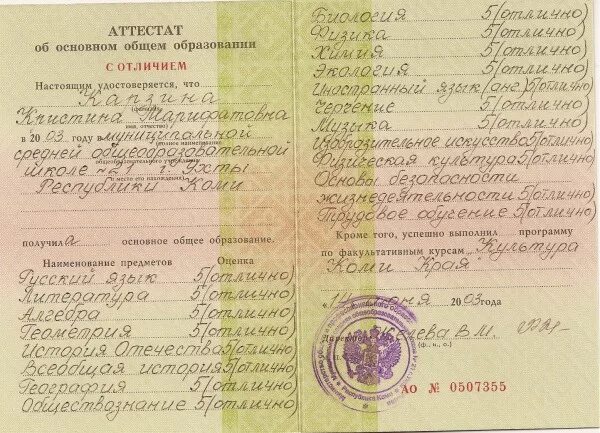 АТТЕСТАТ
об основном общем образовании
С ОТЛИЧИЕМ
Настоящим удостоверяется, что
Капзина
(фамилия)
Кристина Марифатовна
(имя, отчество)
в 2003 году в муниципальной
(полное наименование
средней общеобразовательной
общеобразовательного учреждения
школе №21 г. Ухты
и место его нахождения)
Республики Коми
получила основное общее образование.
Наименование предметов Оценка
Русский язык 5(отлично)
Литература 5(отлично)
Алгебра 5(отлично)
Геометрия 5(отлично)
История Отечества 5(отлично)
Всеобщая история 5(отлично)
География 5(отлично)
Обществознание 5(отлично)
Биология 5(отлично)
Физика 5(отлично)
Химия 5(отлично)
Экология 5(отлично)
Иностранный язык(анг.) 5(отлично)
Черчение 5(отлично)
Музыка 5(отлично)
Изобразительное искусство 5(отлично)
Физическая культура 5(отлично)
Основы безопасности
жизнедеятельности 5(отлично)
Трудовое обучение 5(отлично)
Кроме того, успешно выполнил программу
по факультативным курсам Культура
Коми Края
"14 июня 2003 года
Директор В.М.
(ф., и., о.)
АО № 0507355